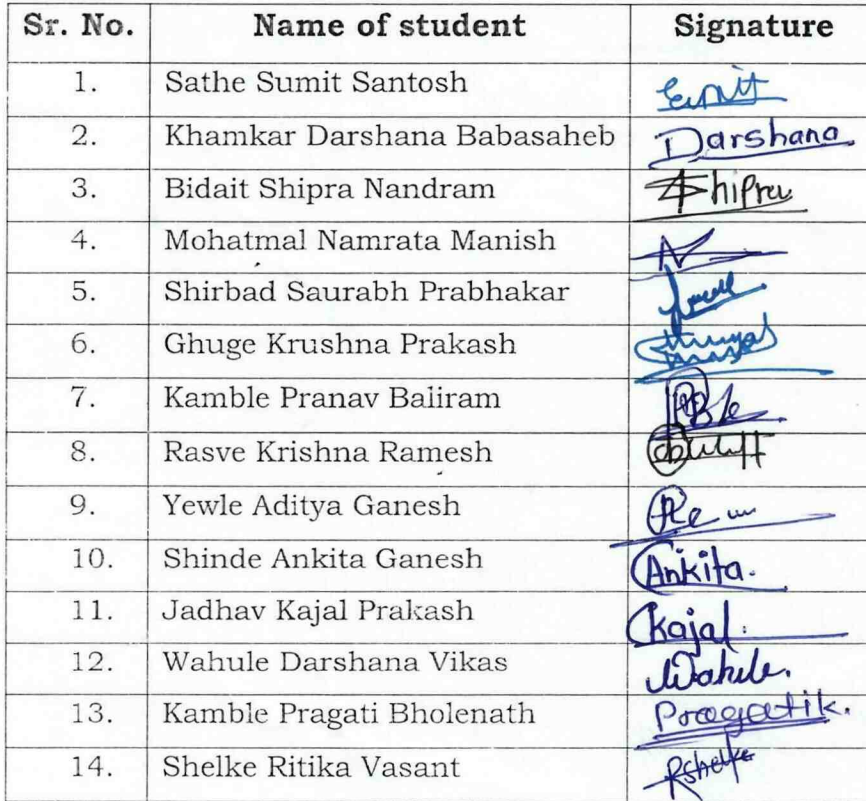 Sr. No. Name of student Signature
1. Sathe Sumit Santosh Sumit
2. Khamkar Darshana Babasaheb Darshana
3. Bidait Shipra Nandram Shipra
4. Mohatmal Namrata Manish
5. Shirbad Saurabh Prabhakar
6. Ghuge Krushna Prakash
7. Kamble Pranav Baliram
8. Rasve Krishna Ramesh
9. Yewle Aditya Ganesh
10. Shinde Ankita Ganesh Ankita.
11. Jadhav Kajal Prakash Kajal.
12. Wahule Darshana Vikas Wahule.
13. Kamble Pragati Bholenath Pragatik.
14. Shelke Ritika Vasant RShelke